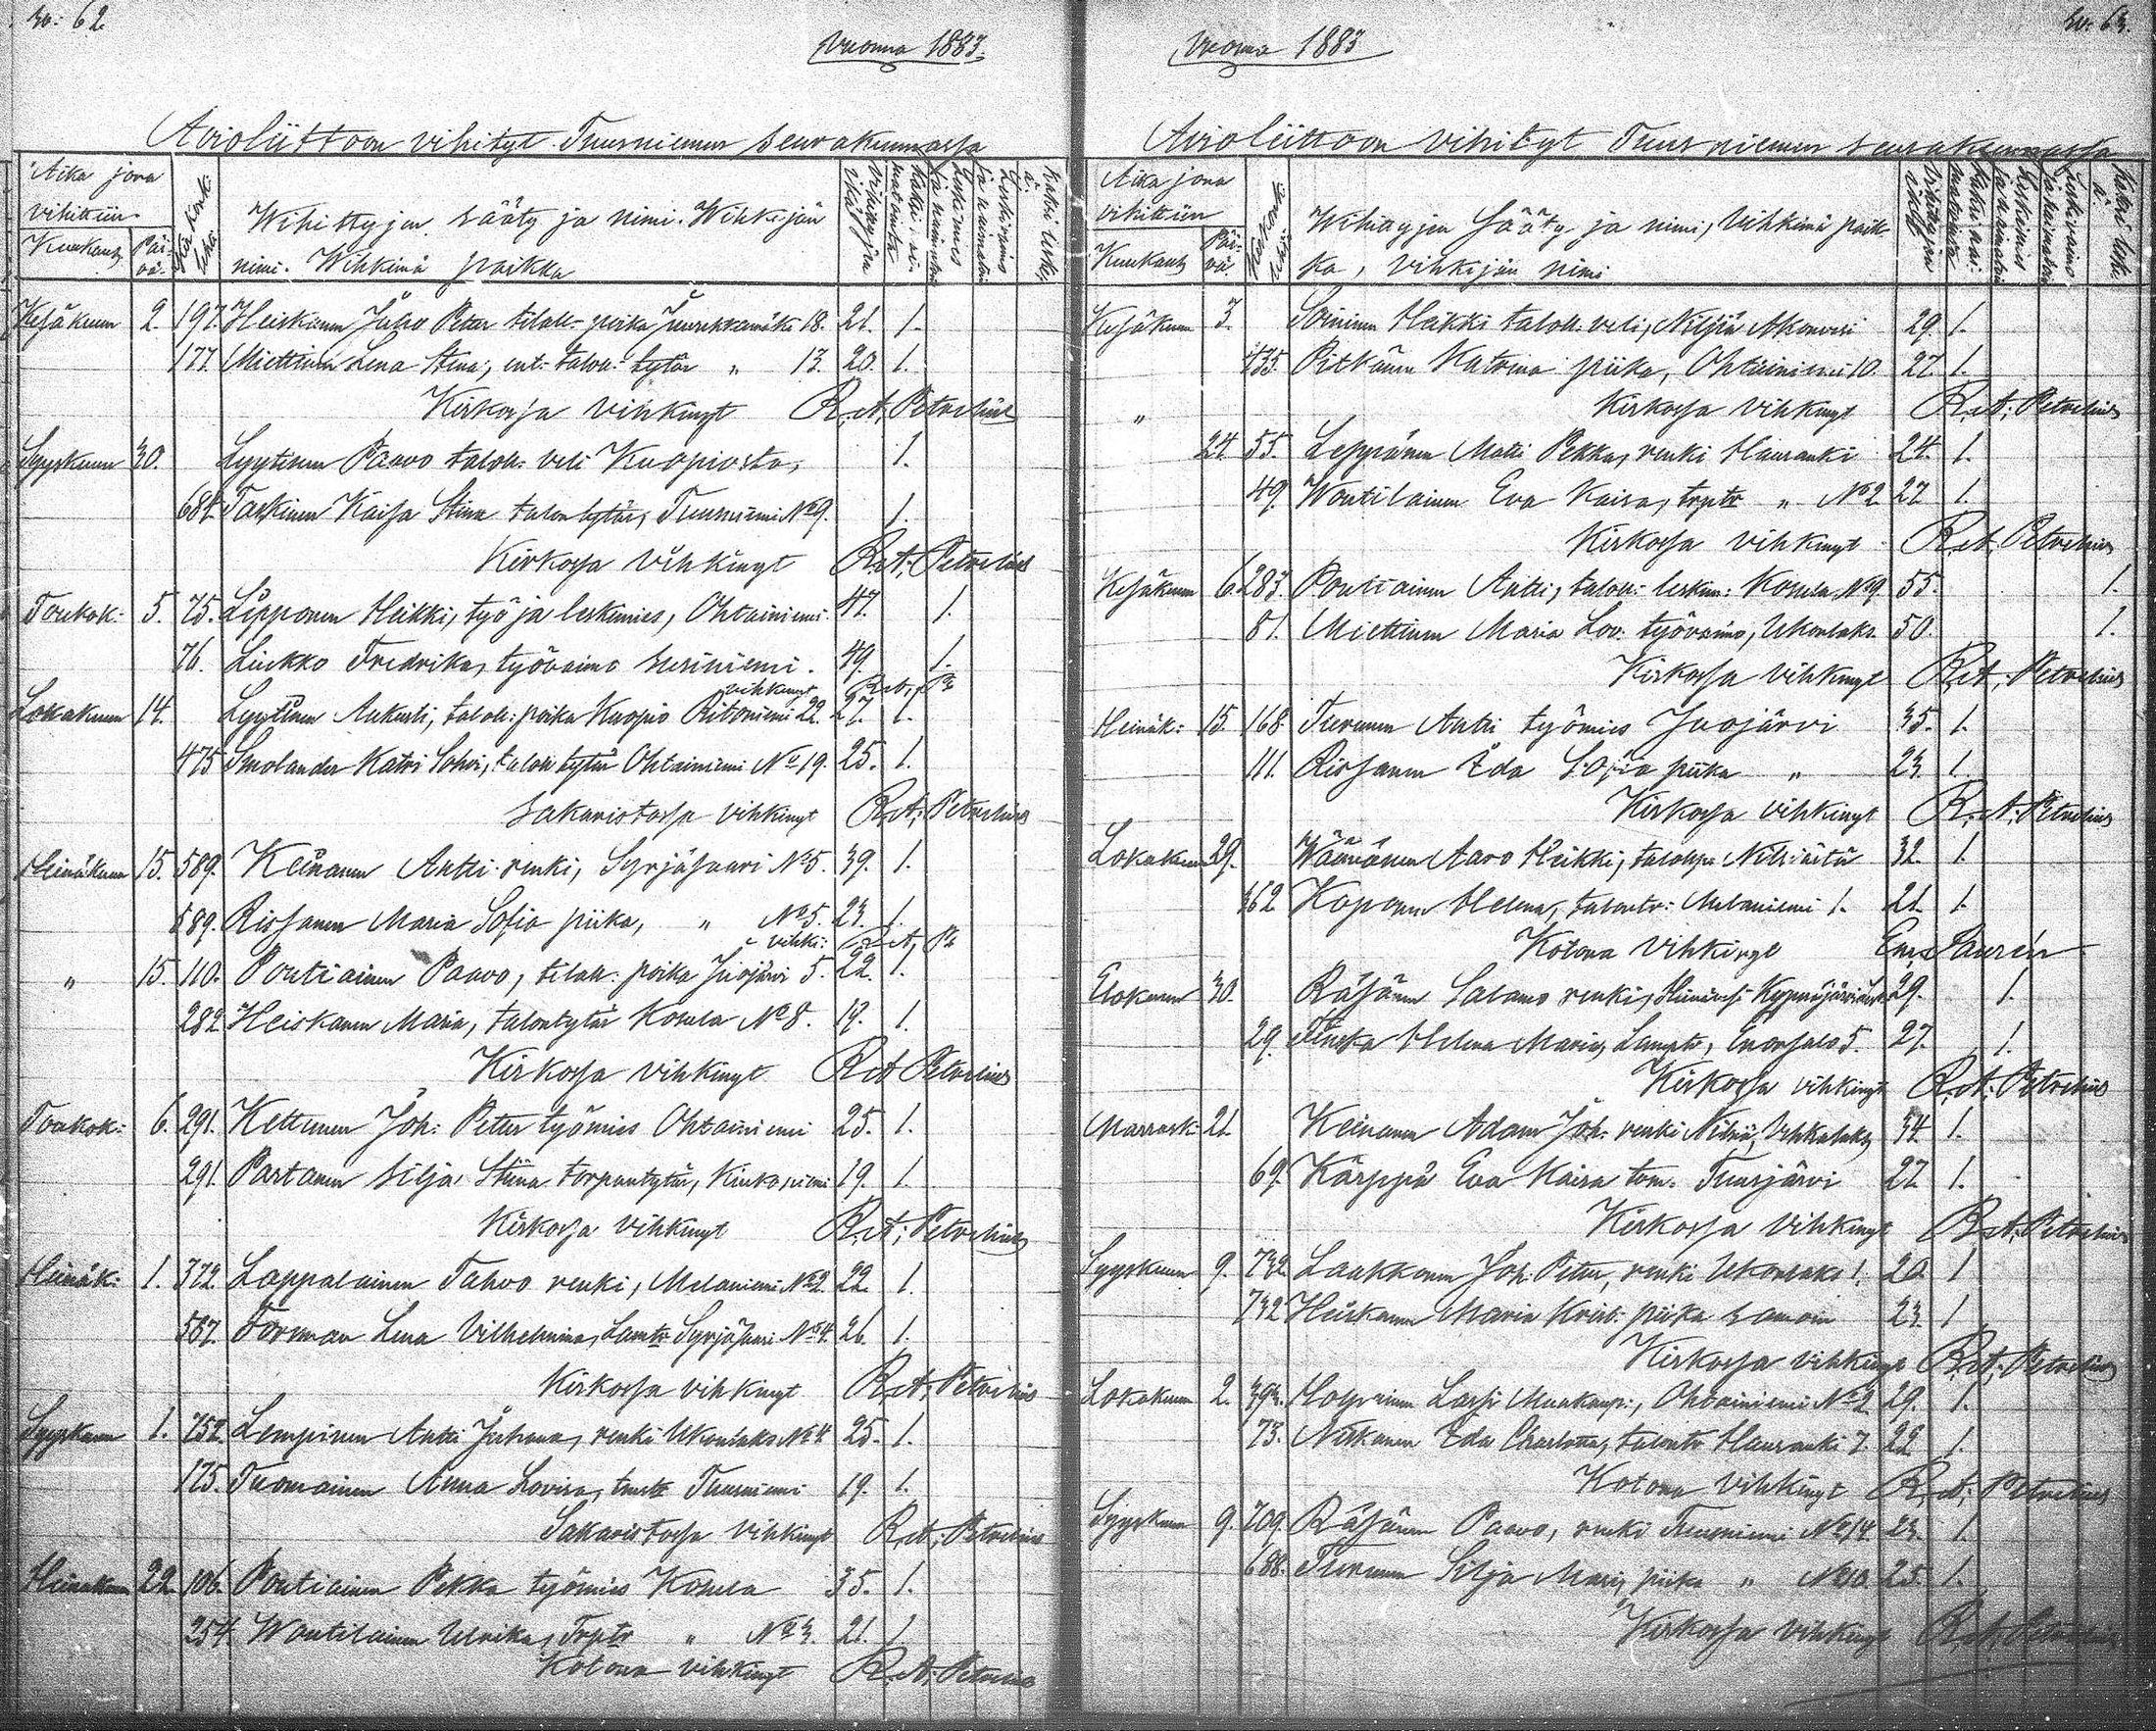 siv: 62.
Vuonna 1883.
Avioliittoon vihityt Tuusniemen seurakunnassa
Aika jona vihittiin
Kuukausi Päivä
Wihittyjen sääty ja nimi. Wihkijän nimi. Wihkimä paikka
Vihittyjen ikä
Kesäkuun 2. 197. Heiskanen Juho Peter taloll: poika Juurikkamäki 18. 21. 1.
177. Miettinen Lena Stina, ent: taloll: tytär „ 13. 20. 1.
Kirkossa vihkinyt R. A. Petrelius
Syyskuun 30. Lyytinen Paavo taloll: veli Kuopiosta, 1.
684. Taskinen Kaisa Stina talontytär, Tuusniemi No 9. 1.
Kirkossa vihkinyt R. A. Petrelius
Toukok: 5. 75. Lipponen Heikki, työ ja leskimies, Ohtainiemi. 47. 1.
76. Liukko Fredrika, työvaimo Susiniemi. 49. 1.
vihkinyt R. A. P.
Lokakuun 14. Lyytinen Aukusti, taloll: poika Kuopio Ritoniemi 22. 27. 1.
475. Smolander Katri Sohvi, talon tytär Ohtainiemi No 19. 25. 1.
Sakaristossa vihkinyt R. A. Petrelius
Heinäkuun 15. 589. Keinänen Antti renki, Syrjäsaari No 5. 39. 1.
589. Rissanen Maria Sofia piika, „ No 5. 23. 1.
vihki: R. A. P.
„ 15. 110. Poutiainen Paavo, taloll: poika Juojärvi 5. 22. 1.
282. Heiskanen Maria, talontytär Kosula No 8. 19. 1.
Kirkossa vihkinyt R. A. Petrelius
Toukok: 6. 291. Kettunen Joh: Petter työmies Ohtainiemi 25. 1.
291. Partanen Silja Stiina torpantytär, Kiukoniemi 19. 1.
Kirkossa vihkinyt R. A. Petrelius
Heinäk: 1. 372. Lappalainen Tahvo renki, Melaniemi No 2. 22. 1.
587. Forsman Lena Vilhelmina, Syrjäsaari No 4. 26. 1.
Kirkossa vihkinyt R. A. Petrelius
Syyskuun 1. 752. Lempinen Antti Juhana, renki Ukonlaks No 4. 25. 1.
175. Tuomainen Anna Lovisa, Tuusniemi 19. 1.
Sakaristossa vihkinyt R. A. Petrelius
Heinäkuun 22. 106. Poutiainen Pekka työmies Kosula 35. 1.
254. Woutilainen Ulrika, Trptr „ No 3. 21. 1.
Kotona vihkinyt R. A. Petrelius
siv: 63.
Vuonna 1883
Avioliittoon vihityt Tuusniemen seurakunnassa
Aika jona vihittiin
Kuukausi Päivä
Wihittyjen sääty ja nimi, Vihkimä paikka, vihkijän nimi
Vihittyjen ikä
Kesäkuun 3. Soininen Heikki taloll: veli, Nilsiä Akonvesi 29. 1.
435. Pitkänen Katrina piika, Ohtainiemi 10. 27. 1.
„ Kirkossa vihkinyt R. A. Petrelius
24. 55. Leppänen Matti Pekka, renki Hauranki 24. 1.
49. Woutilainen Eva Kaisa, trptr „ No 2. 27. 1.
Kirkossa vihkinyt R. A. Petrelius
Kesäkuun 6. 283. Poutiainen Antti, taloll: leskim: Kosula No 9. 55. 1.
81. Miettinen Maria Lov: työvaimo, Ukonlaks 50. 1.
Kirkossa vihkinyt R. A. Petrelius
Heinäk: 15. 168. Turunen Antti työmies Juojärvi 35. 1.
111. Rissanen Ida Sofia piika „ 23. 1.
Kirkossa vihkinyt R. A. Petrelius
Lokakuun 29. Wäänänen Aaro Heikki, Nilsiästä 32. 1.
362. Koponen Helena, talontr: Melaniemi 1. 21. 1.
Kotona vihkinyt Laurén
Elokuun 30. Räsänen Salamo renki, 29. 1.
29. Helena Maria, Enonsalo 5. 27. 1.
Kirkossa vihkinyt R. A. Petrelius
Marrask: 21. Keinänen Adam Joh: renki Nilsiä, 34. 1.
69. Kärppä Eva Kaisa Tuusjärvi 27. 1.
Kirkossa vihkinyt R. A. Petrelius
Syyskuun 9. 732. Laukkanen Joh: Peter, renki Ukonlaks 1. 20. 1
732. Heiskanen Maria Krist: piika samoin 23. 1
Kirkossa vihkinyt R. A. Petrelius
Lokakuun 2. 393. Holopainen Lassi Ohtainiemi No 2. 29. 1.
73. Niskanen Ida Charlotta, talontr Hauranki 7. 22. 1.
Kotona vihkinyt R. A. Petrelius
Syyskuun 9. 709. Räsänen Paavo, renki Tuusniemi No 14. 23. 1.
688. Turunen Silja Maria, piika „ No 10. 25. 1.
Kirkossa vihkinyt R. A. Petrelius